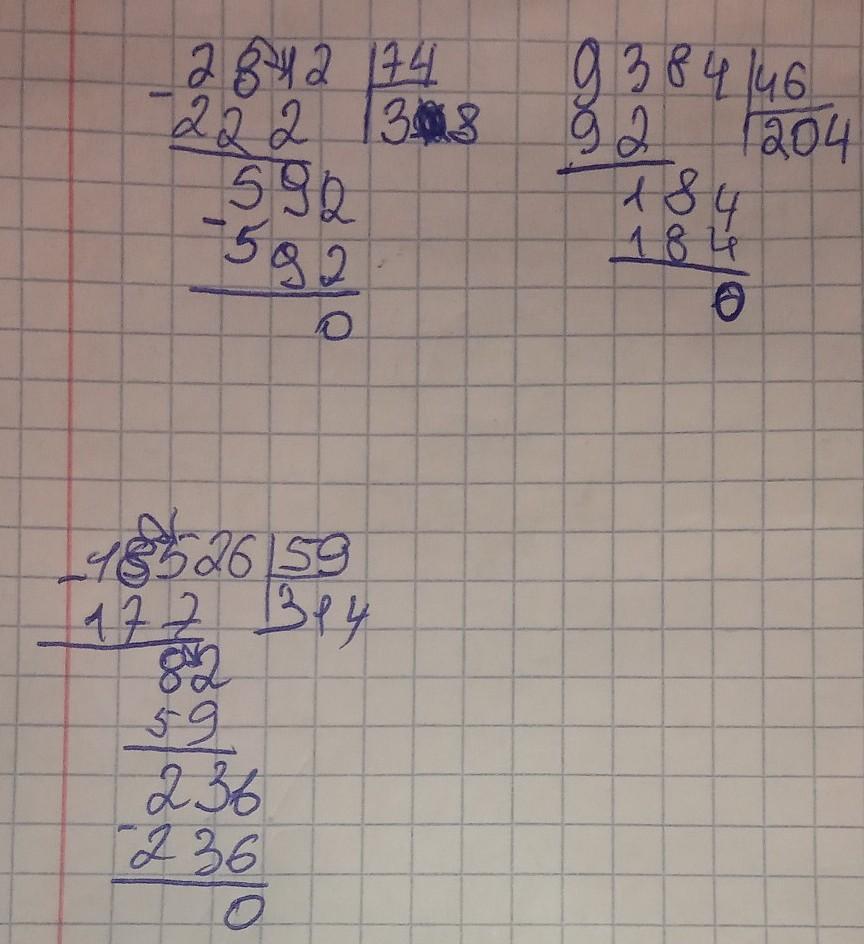 - 2812 | 74
222 | 38
- 592
592
0
9384 | 46
92 | 204
184
184
0
- 18526 | 59
177 | 314
82
59
236
- 236
0